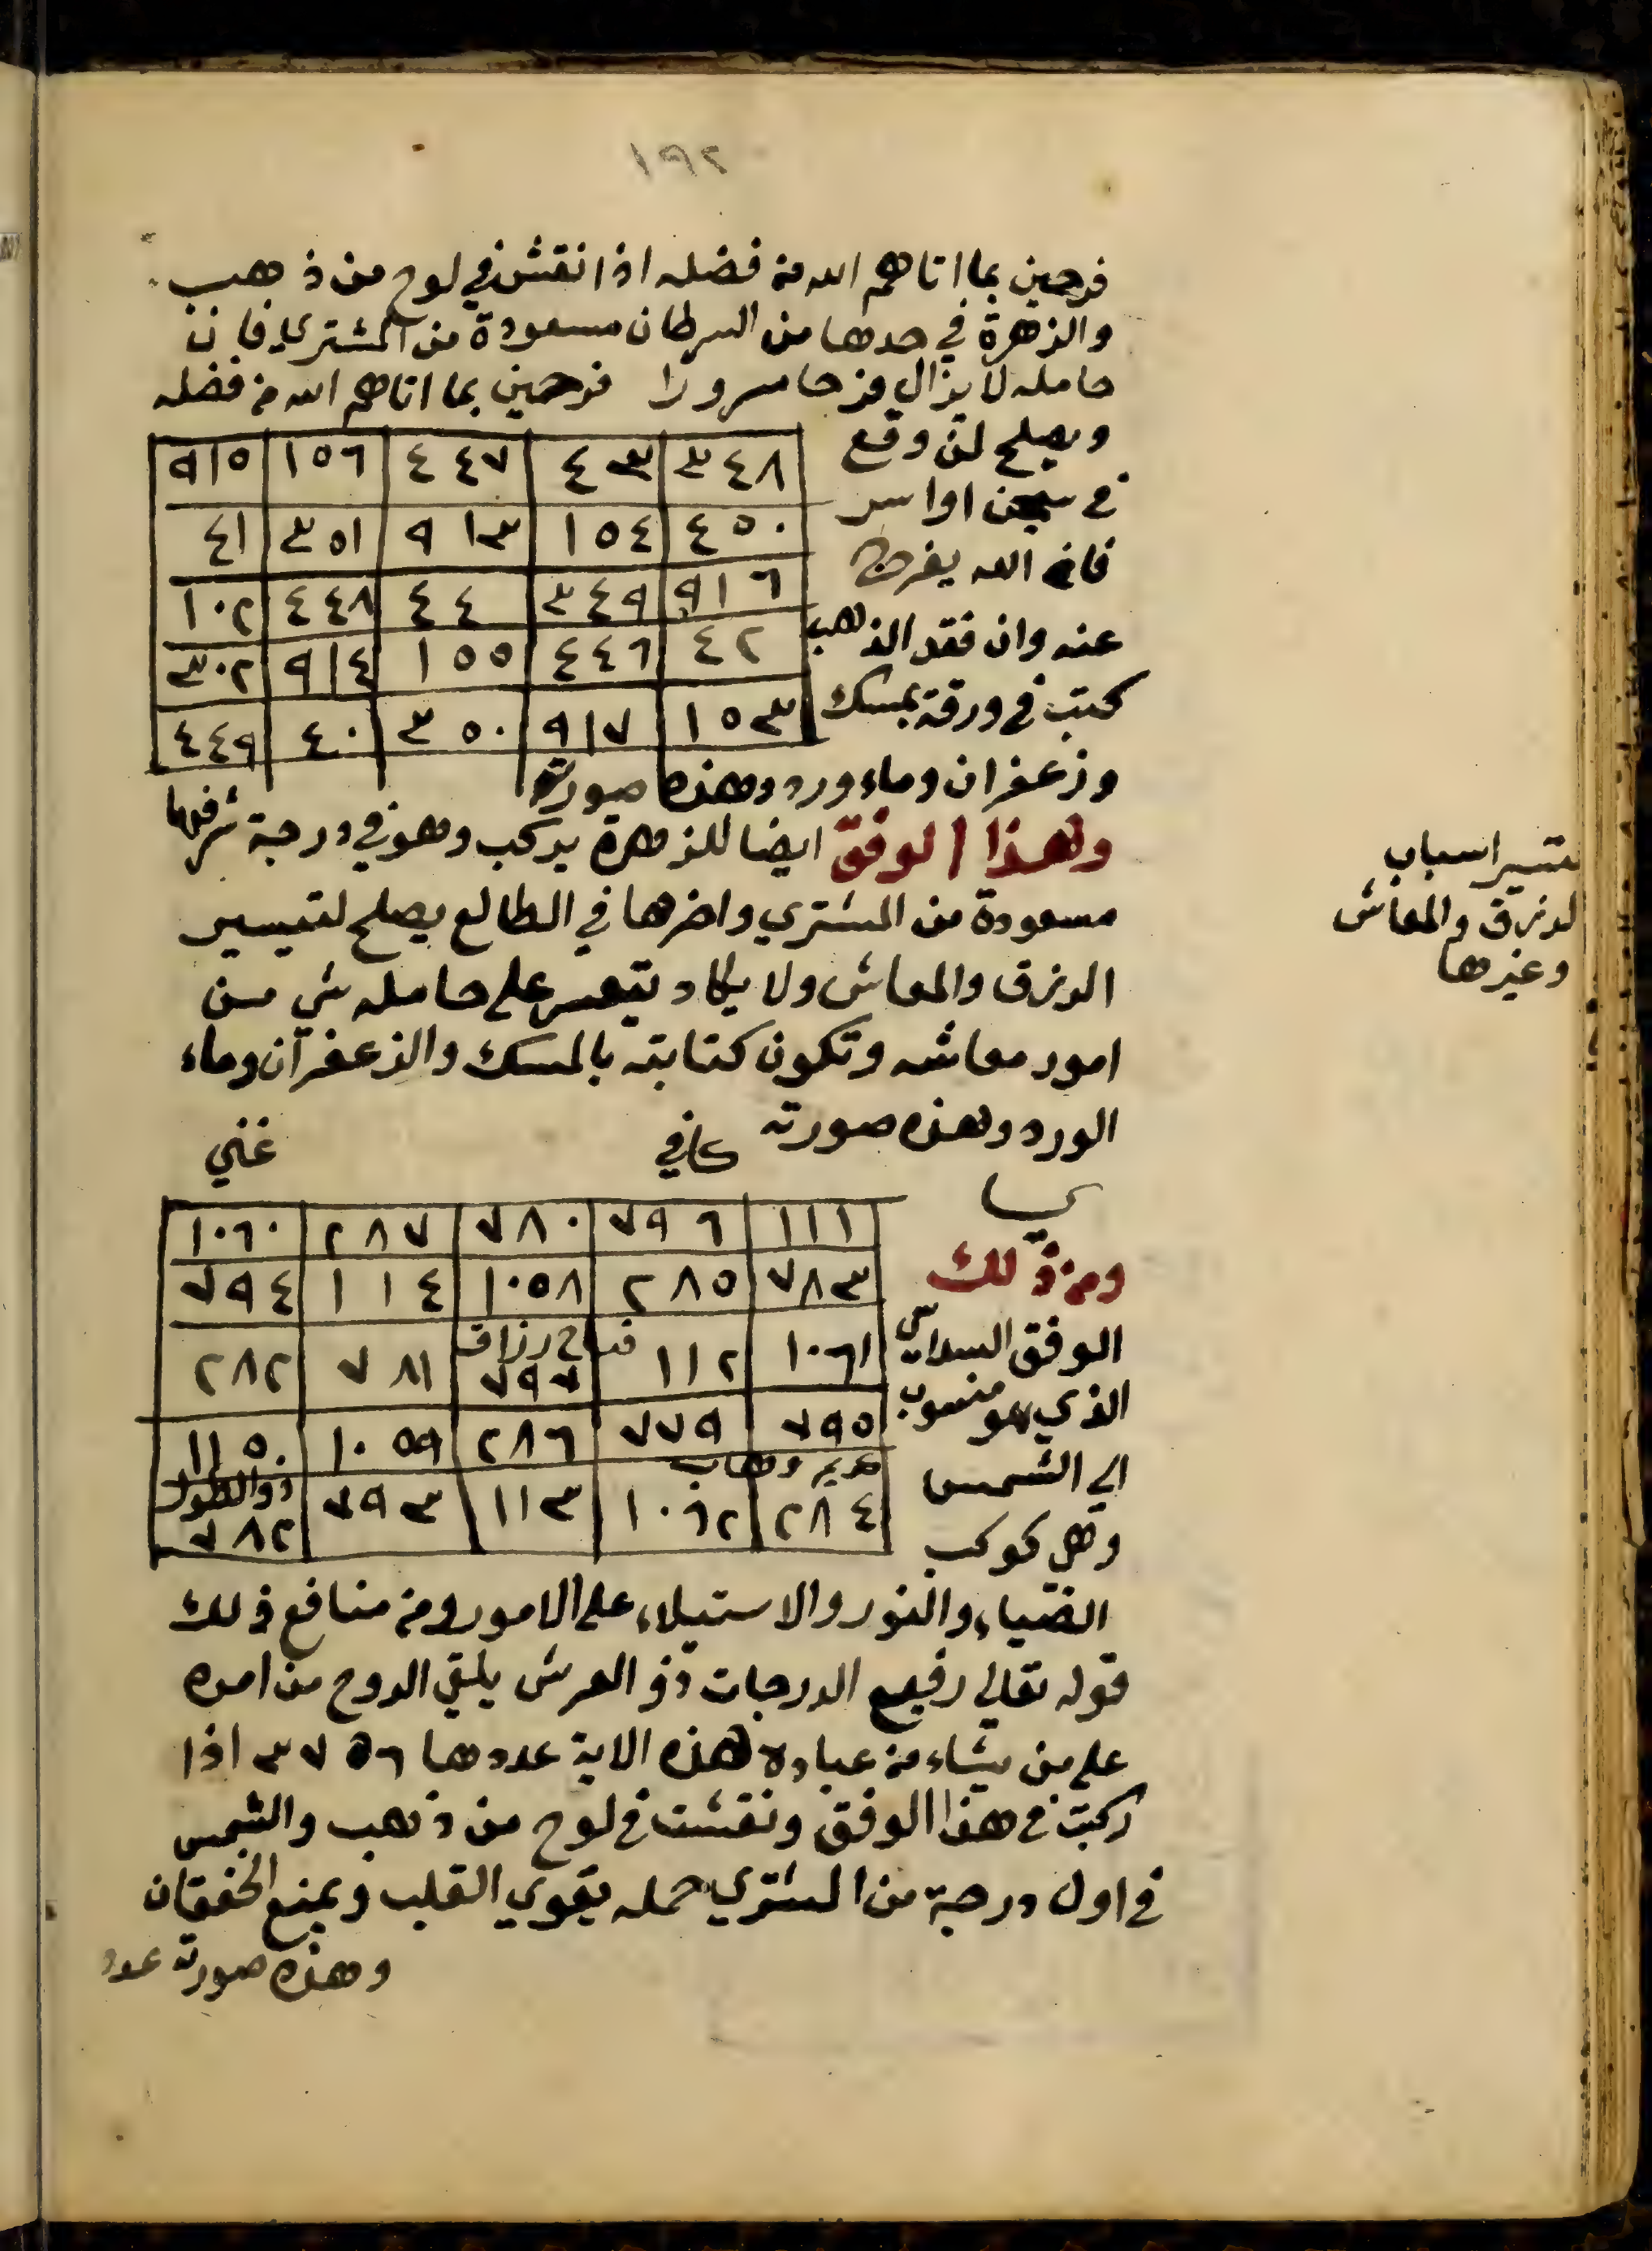 ١٩٢
فرحين بما اتاهم الله من فضله اذا نقش في لوح من ذهب
والزهرة في حدها من السرطان مسعودة من المشتري فان
حامله لا يزال فرحا مسرورا فرحين بما اتاهم الله من فضله
ويصلح لمن وقع
في سجن او اسر
فانه الله يفرج
عنه وان فقد الذهب
كتب في ورقة بمسك
٣٤٨ ٤٣ ٤٤٧ ١٥٦ ٩١٥
٤٥٠ ١٥٤ ٩١٣ ٣٥١ ٤١
٩١٦ ٣٤٩ ٤٤ ٤٤٨ ١٠٢
٤٢ ٤٤٦ ١٥٥ ٩١٤ ٣٠٢
١٥٣ ٩١٧ ٣٥٠ ٤٠ ٤٤٩
وزعفران وماء ورد وهذه صورته
وهذا الوفق ايضا للزهرة يركب وهو في درجة شرفها
مسعودة من المشتري واخرها في الطالع يصلح لتيسير
الرزق والمعاش ولا يكاد يتعسر على حامله شي من
امور معاشه وتكون كتابته بالمسك والزعفران وماء
الورد وهذه صورته كافي غني
تيسير اسباب
الرزق والمعاش
وغيرها
١١١ ٧٩٦ ٧٨٠ ٢٨٧ ١٠٦٠
٧٨٣ ٢٨٥ ١٠٥٨ ١١٤ ٧٩٤
١٠٦١ ١١٢ فتاح رزاق ٧٩٧ ٧٨١ ٢٨٢
٧٩٥ ٧٧٩ ٢٨٦ ١٠٥٩ ١١٥٠
٢٨٤ وهاب ١٠٦٢ ١١٣ ٧٩٣ ذو الطول ٧٨٢
ومن ذلك
الوفق السداسي
الذي هو منسوب
الي الشمس
وهي كوكب
الضياء والنور والاستيلاء على الامور ومن منافع ذلك
قوله تعالي رفيع الدرجات ذو العرش يلقي الروح من امره
على من يشاء من عباده هذه الاية عددها ٣٧٥٦ اذا
ركبت في هذا الوفق ونقشت في لوح من ذهب والشمس
في اول درجة من المشتري حمله يقوي القلب ويمنع الخفقان
وهذه صورته عدد